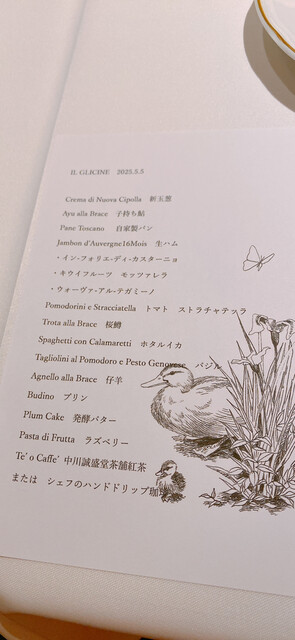 IL GLICINE 2025.5.5
Crema di Nuova Cipolla 新玉葱
Ayu alla Brace 子持ち鮎
Pane Toscano 自家製パン
Jambon d'Auvergne16Mois 生ハム
・イン・フォリエ・ディ・カスターニョ
・キウイフルーツ モッツァレラ
・ウォーヴァ・アル・テガミーノ
Pomodorini e Stracciatella トマト ストラチャテッラ
Trota alla Brace 桜鱒
Spaghetti con Calamaretti ホタルイカ
Tagliolini al Pomodoro e Pesto Genovese バジル
Agnello alla Brace 仔羊
Budino プリン
Plum Cake 発酵バター
Pasta di Frutta ラズベリー
Te' o Caffe' 中川誠盛堂茶舗紅茶
または シェフのハンドドリップ珈琲